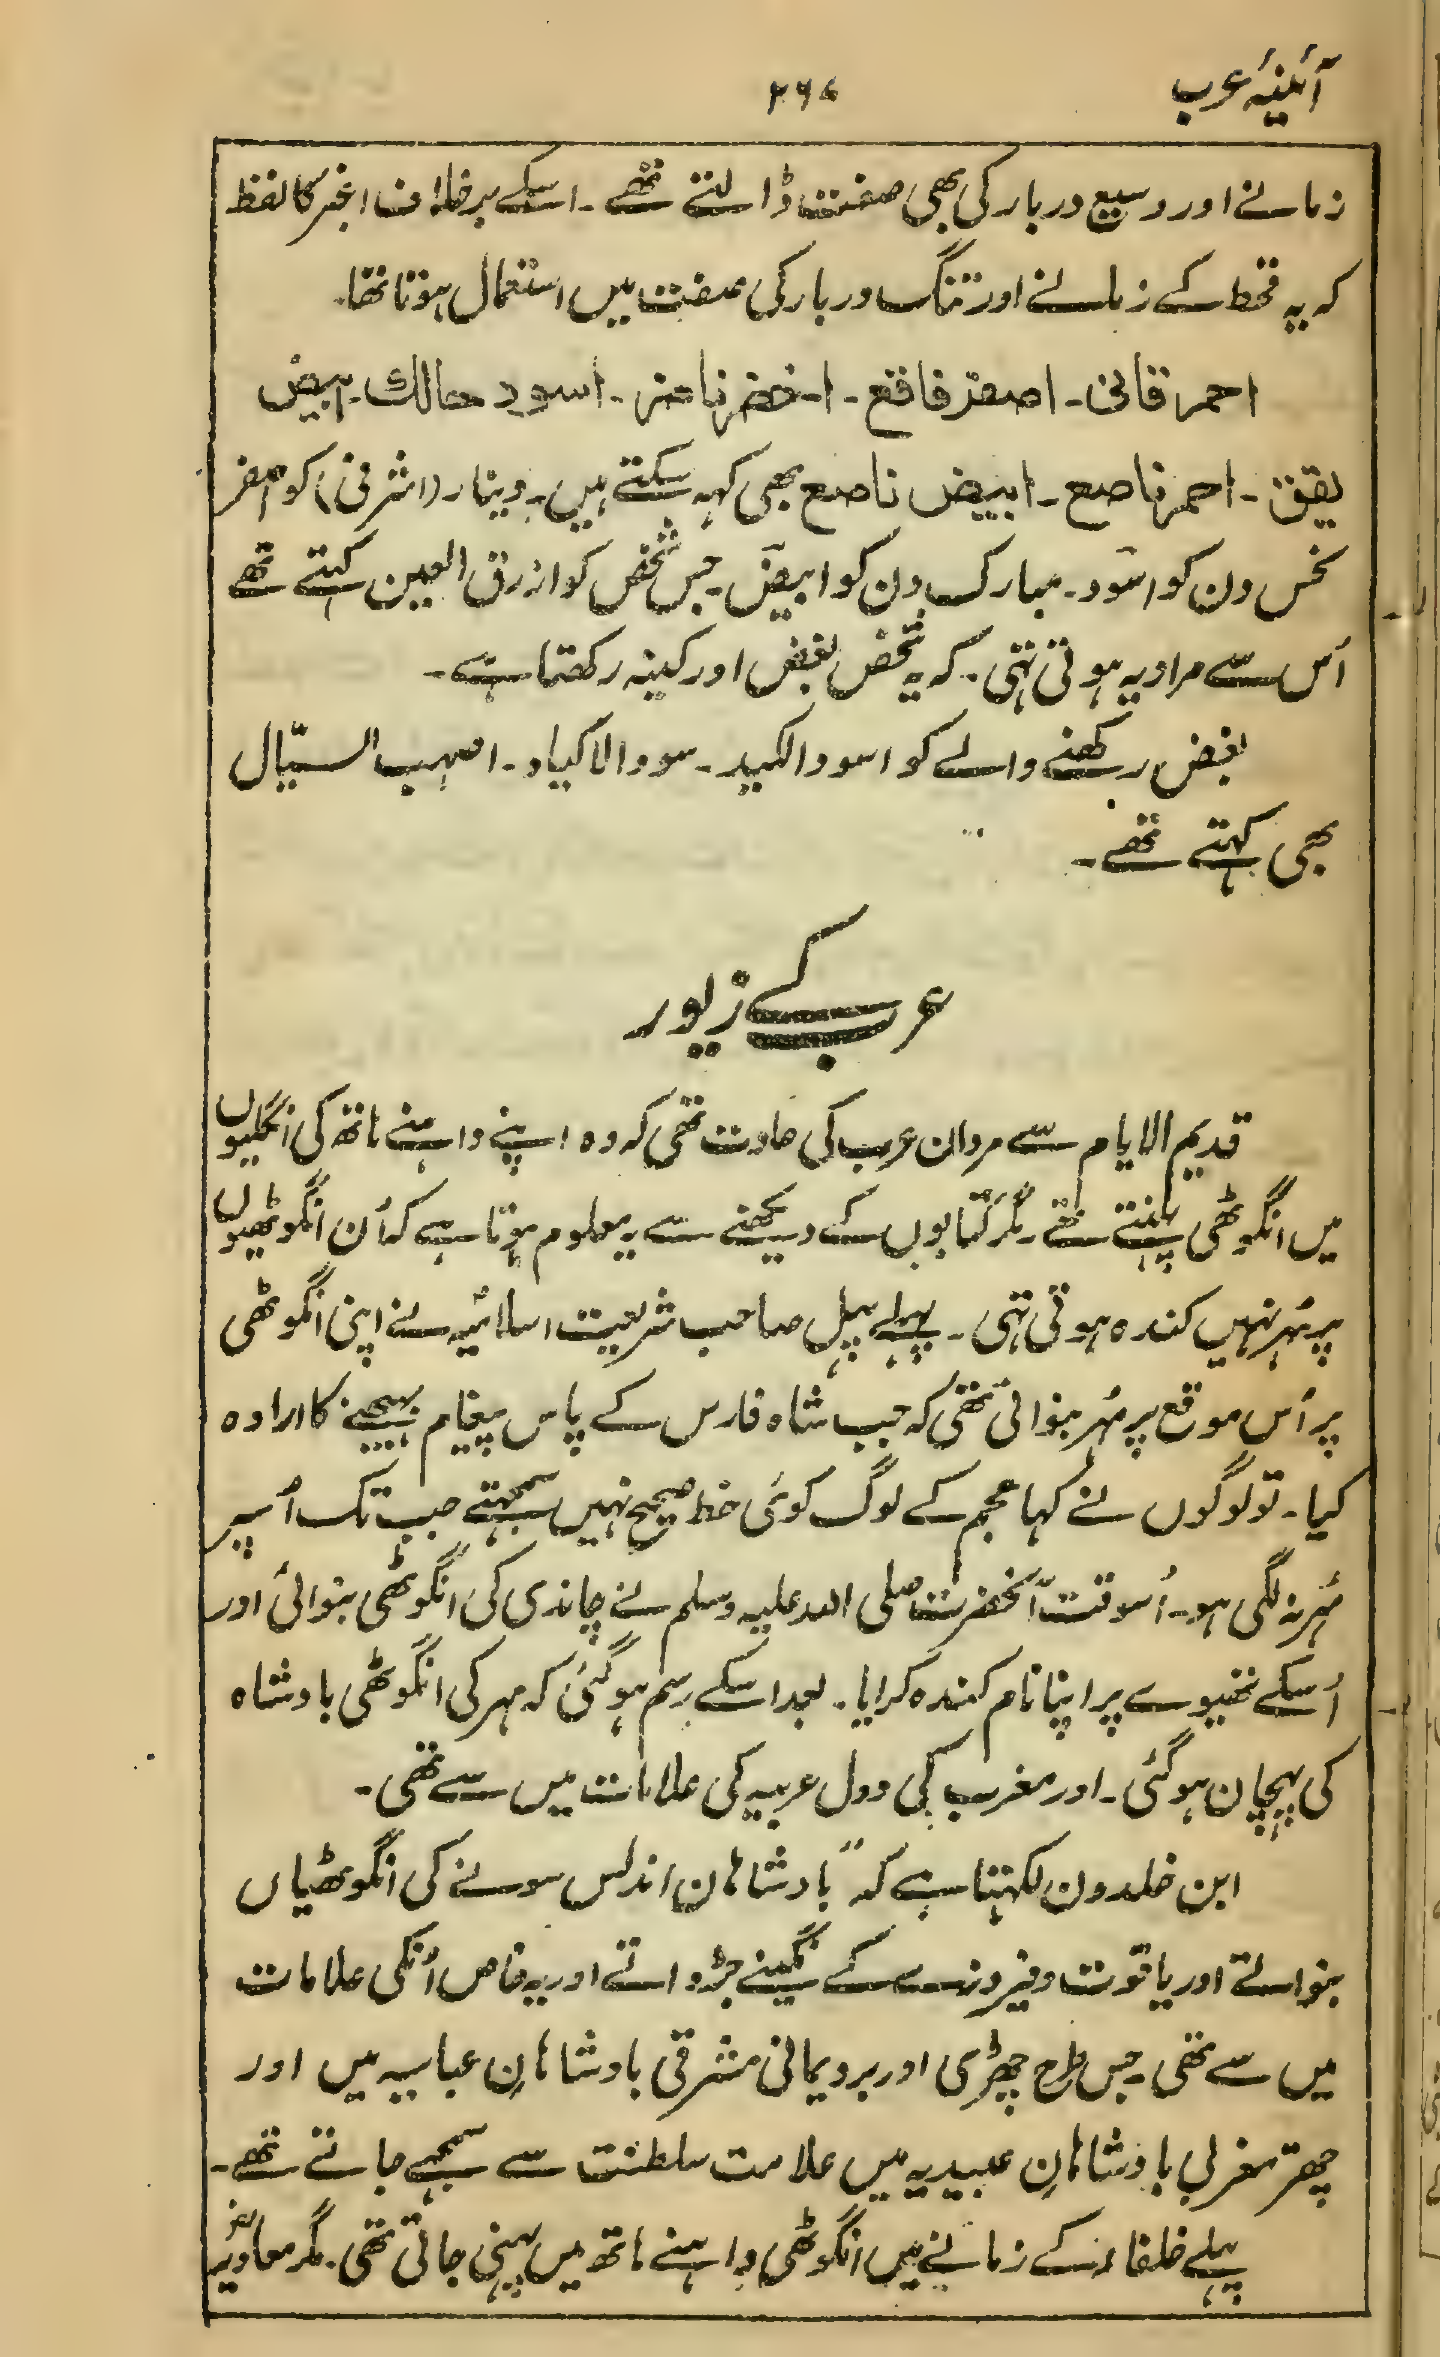 آئینۂ عرب
۲۶۷
زمانے اور وسیع دربار کی بھی صفت ڈالتے تھے۔ اسکے برخلاف اغبر کا لفظ
کہ یہ قحط کے زمانے اور تنگ دربار کی صفت میں استعمال ہوتا تھا۔
احمر قانی۔ اصفر فاقع۔ اخضر ناضر۔ اسود حالك۔ ابیض
یقق۔ احمر ناصع۔ ابیض ناصع بھی کہہ سکتے ہیں۔ دینار (اشرفی) کو اصفر
نحس دن کو اسود۔ مبارک دن کو ابیض۔ جس شخص کو ازرق العین کہتے تھے
اُس سے مراد یہ ہوتی تہی۔ کہ یہ شخص بغض اور کینہ رکھتا ہے۔
بغض رکھنے والے کو اسود الکبد۔ سود الاکباد۔ اصہب السبّال
بھی کہتے تھے۔
عرب کے زیور
قدیم الایام سے مردان عرب کی عادت تھی کہ وہ اپنے داہنے ہاتھ کی انگلیوں
میں انگوٹھی پہنتے تھے۔ مگر کتابوں کے دیکھنے سے یہ معلوم ہوتا ہے کہ اُن انگوٹھیوں
پر مُہر نہیں کندہ ہوتی تہی۔ پہلے پہل صاحب شریعت اسلامیہ نے اپنی انگوٹھی
پر اُس موقع پر مُہر بنوائی تھی کہ جب شاہ فارس کے پاس پیغام بہیجنے کا ارادہ
کیا۔ تو لوگوں نے کہا عجم کے لوگ کوئی خط صحیح نہیں سمجہتے جب تک اُسپر
مُہر نہ لگی ہو۔ اُسوقت آنحضرت صلی اللہ علیہ وسلم نے چاندی کی انگوٹھی بنوائی اور
اُسکے تھیوے پر اپنا نام کندہ کرایا۔ بعد اسکے رسم ہوگئی کہ مہر کی انگوٹھی بادشاہ
کی پہچان ہوگئی۔ اور مغرب کی دول عربیہ کی علامات میں سے تھی۔
ابن خلدون لکہتا ہے کہ ”بادشاہان اندلس سونے کی انگوٹھیاں
بنواتے اور یاقوت و فیروزے کے نگینے جڑواتے اور یہ خاص اُنکی علامات
میں سے تھی۔ جس طرح چھڑی اور برد یمانی مشرقی بادشاہانِ عباسیہ میں اور
چھتر مغربی بادشاہانِ عبیدیہ میں علامت سلطنت سے سمجہے جاتے تھے۔
پہلے خلفاء کے زمانے میں انگوٹھی داہنے ہاتھ میں پہنی جاتی تھی۔ مگر معاویہؓ